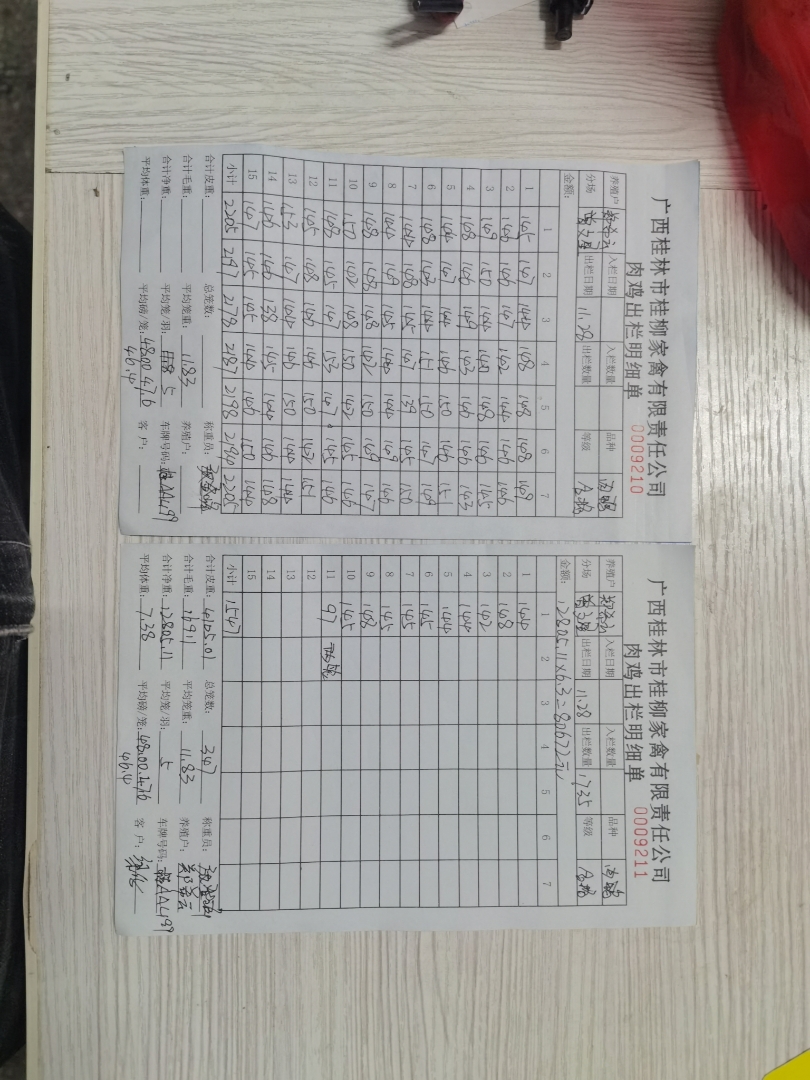 广西桂林市桂柳家禽有限责任公司
肉鸡出栏明细单 0009210
养殖户 入栏日期 入栏数量 品种
分场 出栏日期 11.28 出栏数量 等级
金额:
1 2 3 4 5 6 7
1 145 147 144 148 148 148 149
2 146 146 147 142 144 146 146
3 149 150 144 140 148 146 145
4 148 146 149 143 146 146 143
5 144 147 144 146 150 146 151
6 148 143 144 151 150 147 149
7 144 148 145 147 139 145 150
8 144 149 145 144 144 149 146
9 148 148 148 142 150 149 147
10 150 142 148 150 142 145 146
11 148 145 147 153 147 145 146
12 145 148 146 146 150 142 151
13 153 147 144 146 150 144 144
14 146 140 138 145 144 146 148
15 147 145 145 144 146 150 144
小计 2205 2197 2178 2187 2198 2194 2205
合计皮重: 总笼数: 称重员:
合计毛重: 平均笼重: 11.83 养殖户:
合计净重: 平均笼/羽: 5 车牌号码:
平均体重: 平均磅/笼: 48.00 47.6 客户:
46.4
广西桂林市桂柳家禽有限责任公司
肉鸡出栏明细单 0009211
养殖户 入栏日期 入栏数量 品种
分场 出栏日期 11.28 出栏数量 1735 等级
金额: 12805.11×6.3=80672元
1 2 3 4 5 6 7
1 144
2 148
3 142
4 144
5 144
6 145
7 145
8 145
9 148
10 145
11 97
12
13
14
15
小计 1547
合计皮重: 4105.01 总笼数: 347 称重员:
合计毛重: 16911 平均笼重: 11.83 养殖户:
合计净重: 12805.11 平均笼/羽: 5 车牌号码:
平均体重: 7.38 平均磅/笼: 48.00 47.6 客户:
46.4